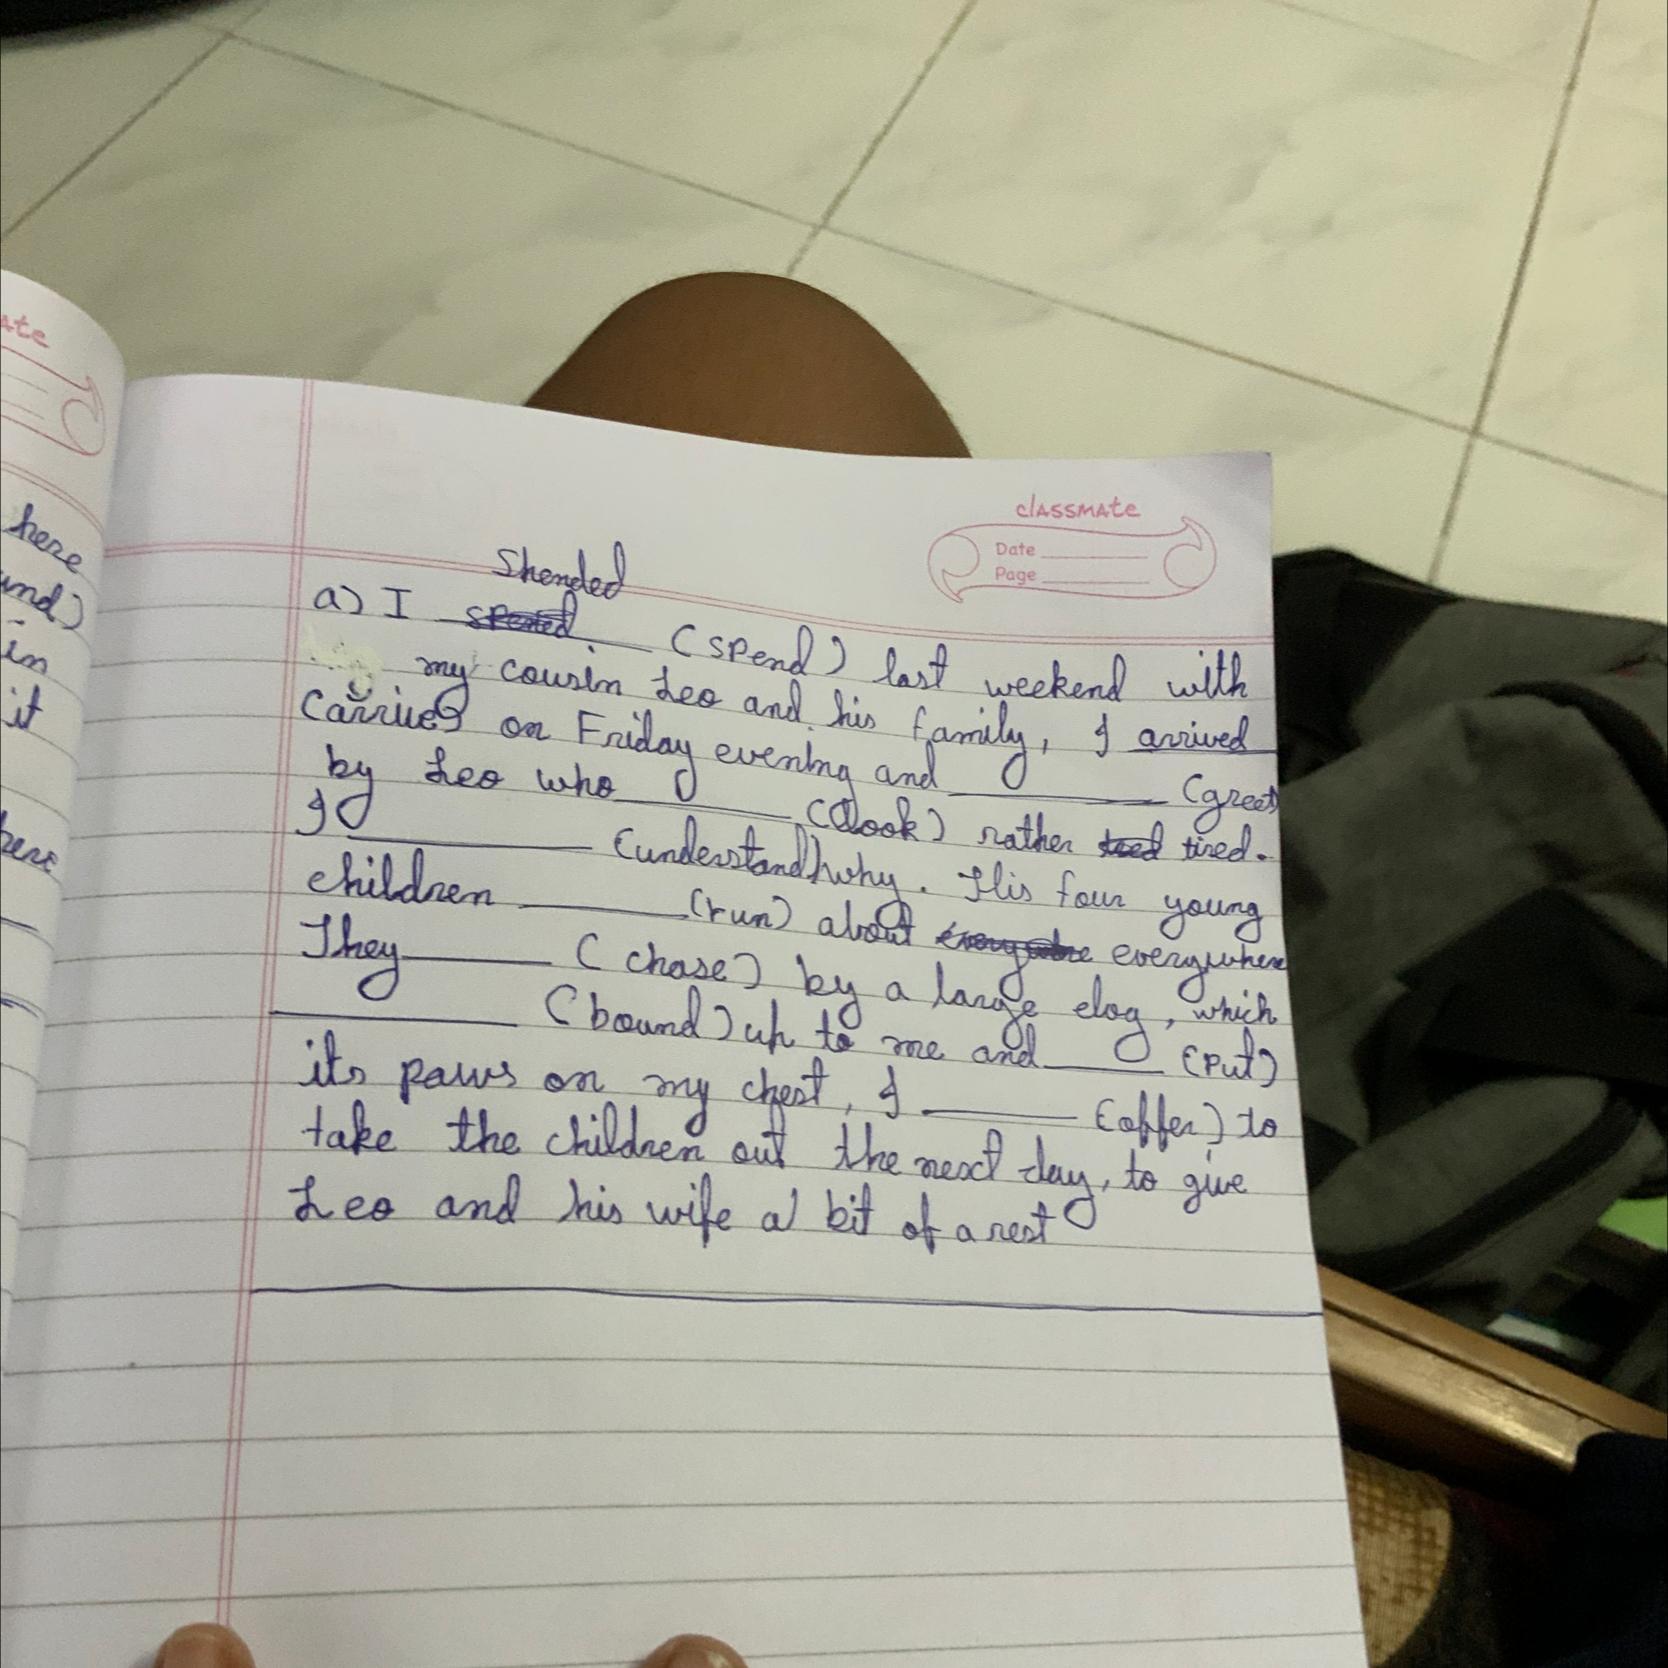 ate
here
und)
in
it
here
classmate
Date
Page
Shended
a) I (spend) last weekend with
my cousin Leo and his family, I arrived
Carrive) on Friday evening and (greet)
by Leo who (look) rather tired.
I (understand) why. His four young
children (run) about everywhere
They (chase) by a large dog, which
(bound) up to me and (put)
its paws on my chest, I (offer) to
take the children out the next day, to give
Leo and his wife a bit of a rest